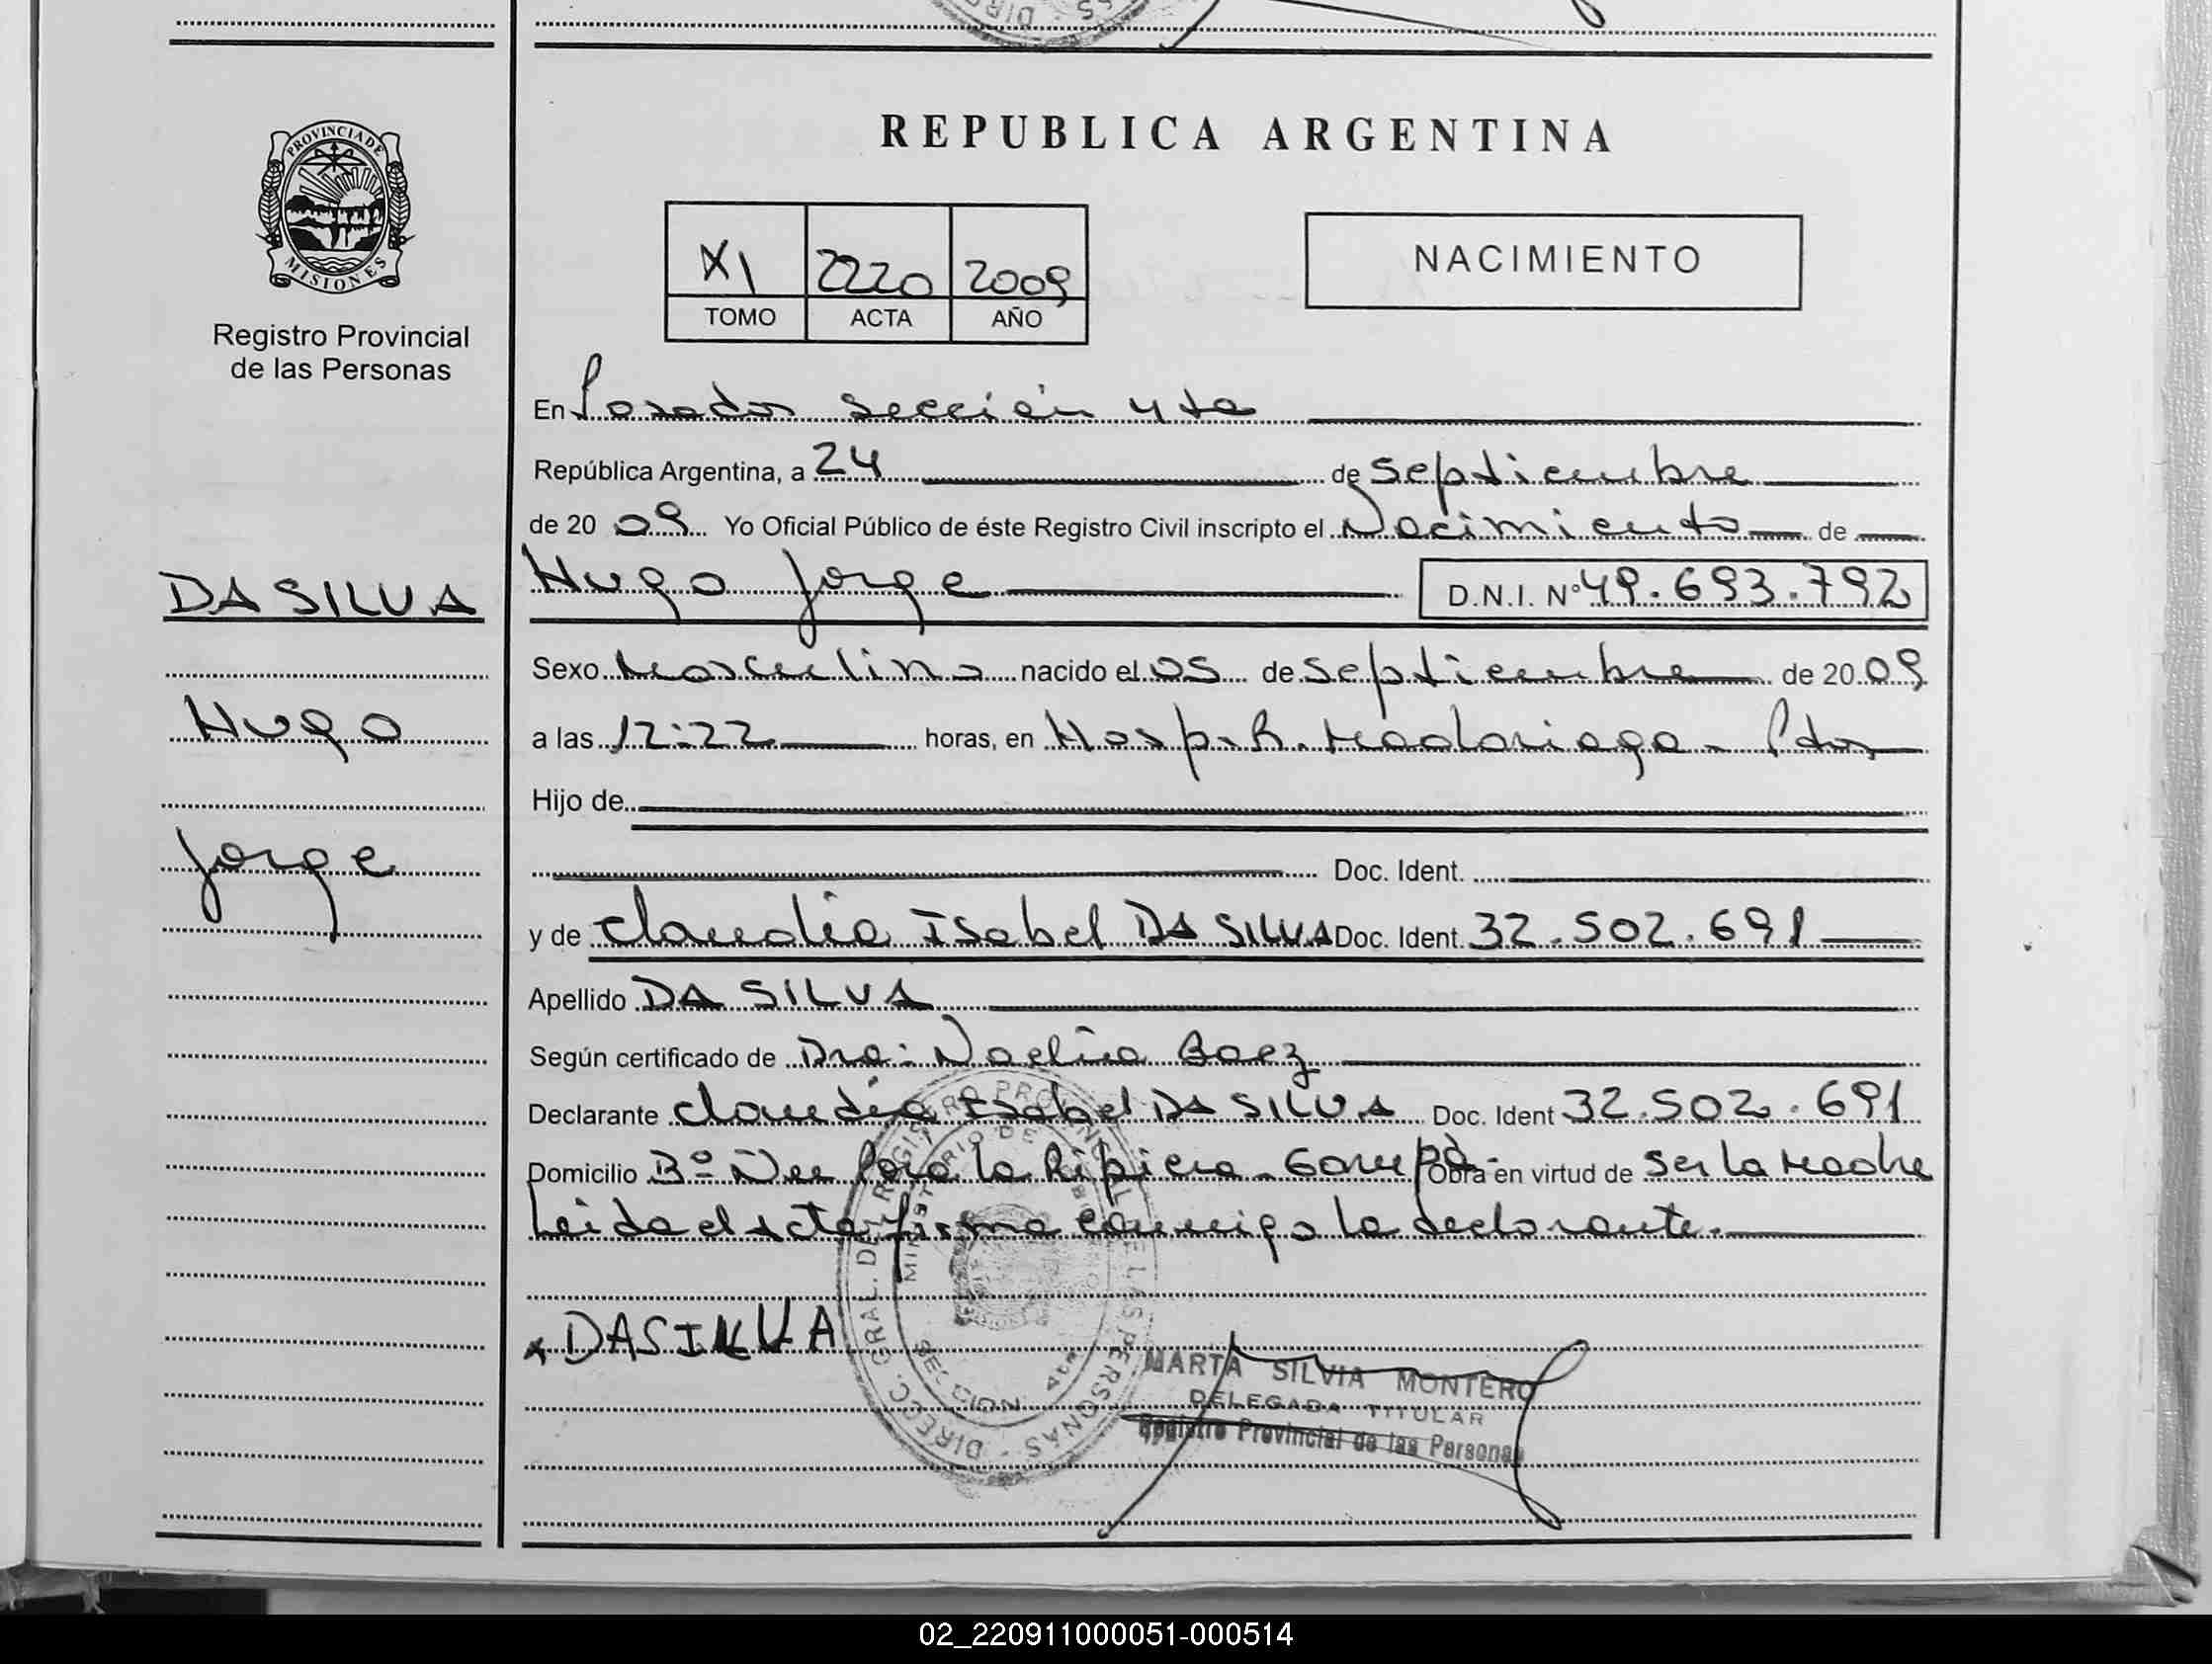 PROVINCIA DE
MISIONES
Registro Provincial
de las Personas
DA SILVA
Hugo
Jorge
REPUBLICA ARGENTINA
XI 2220 2009
TOMO ACTA AÑO
NACIMIENTO
En Posadas Sección 4ta
República Argentina, a 24 de septiembre
de 2009 Yo Oficial Público de éste Registro Civil inscripto el Nacimiento de
Hugo Jorge D.N.I. Nº 49.693.792
Sexo Masculino nacido el 05 de septiembre de 2009
a las 12:22 horas, en Hosp. R. Madariaga - Pdas
Hijo de
Doc. Ident.
y de Claudia Isabel DA SILVA Doc. Ident. 32.502.691
Apellido DA SILVA
Según certificado de Dra: Noelia Baez
Declarante Claudia Isabel DA SILVA Doc. Ident 32.502.691
Domicilio Bº la Garupá. Obra en virtud de ser la Madre
Leida el acta firma conmigo la declarante.
x DASILVA
DIRECC. GRAL. DEL REGISTRO PROVINCIAL DE LAS PERSONAS
MINISTERIO DE
SECCION 4ta
MARTA SILVIA MONTERO
DELEGADA TITULAR
Registro Provincial de las Personas
02_220911000051-000514